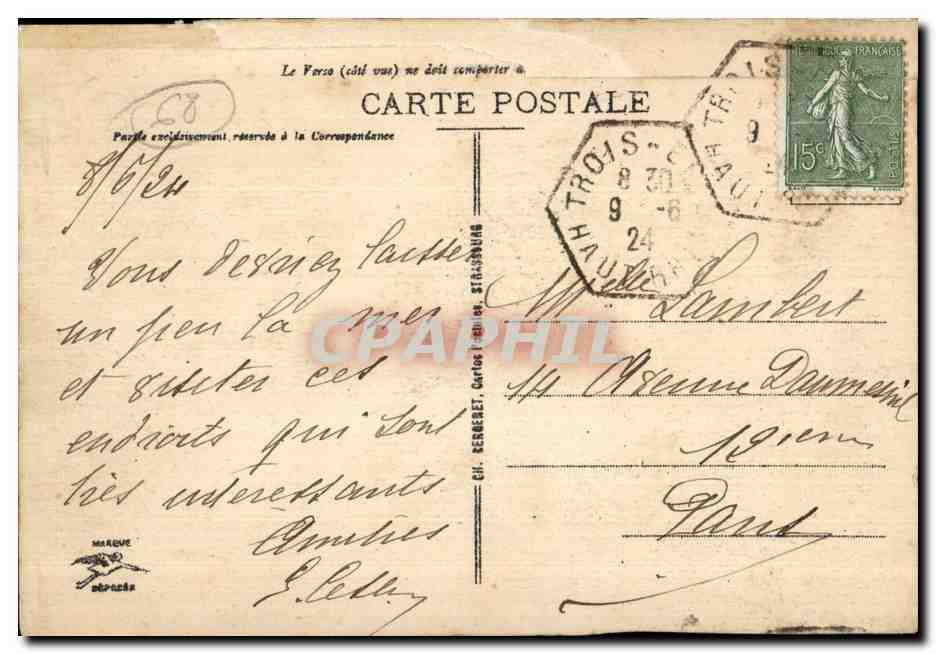 Le Verso (côté vue) ne doit comporter a
CARTE POSTALE
Partie exclusivement réservée à la Correspondance
68
8/6/24
Vous devriez laisser
un peu la mer
et visiter ces
endroits qui sont
très interessants
Amitiés
MARQUE
DÉPOSÉE
CH. BERGERET, Cartes Postales, STRASBOURG
TROIS-E
8 30
9 -6
24
HAUT-RH
TROIS
9
HAUT
REPUBLIQUE FRANÇAISE
15c
POSTES
Melle Lambert
14 Avenue Daumesnil
12ieme
Paris
CPAPHIL